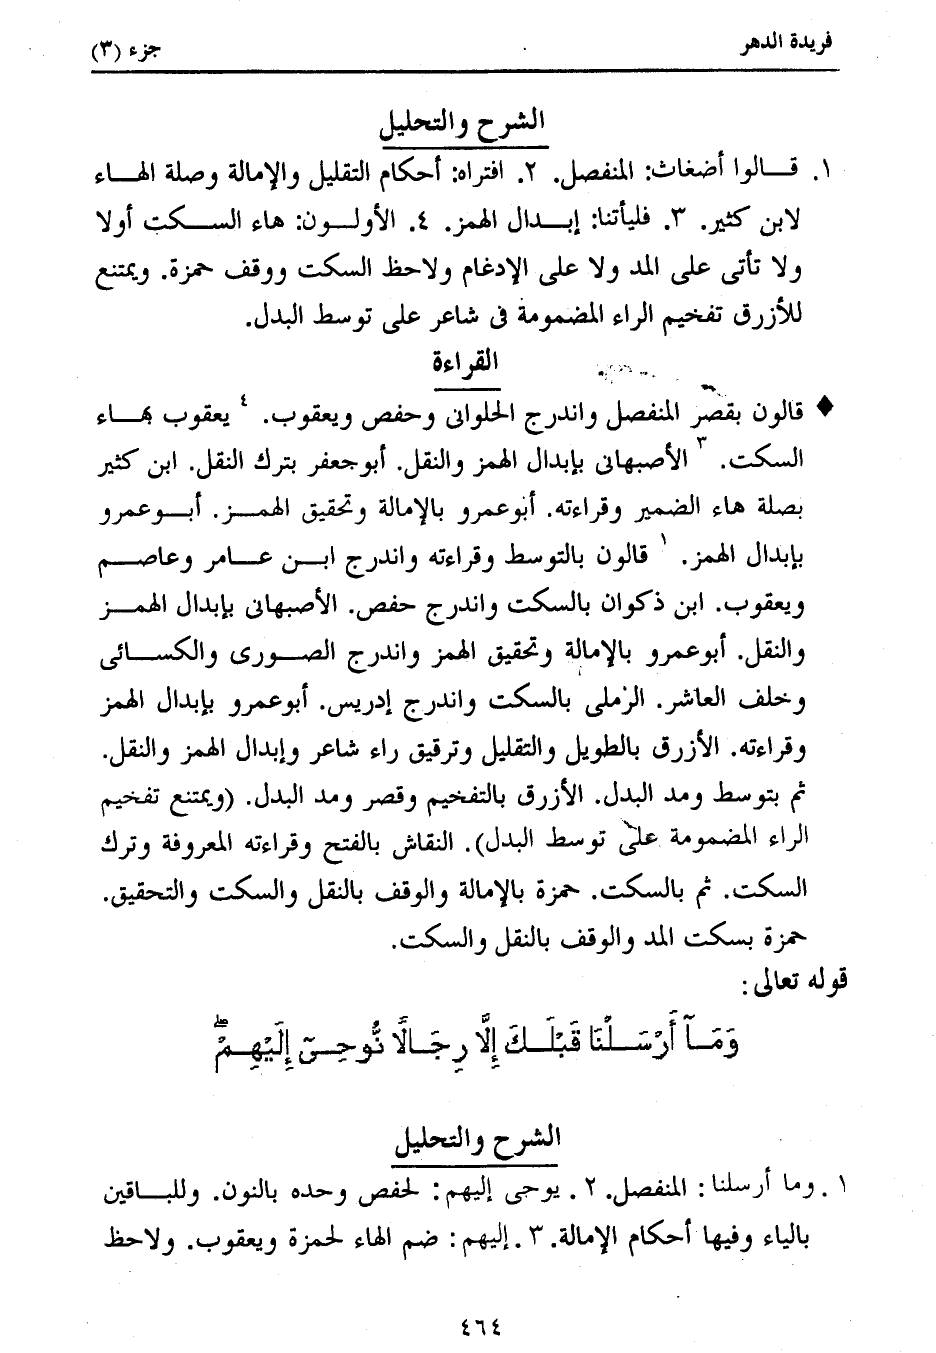 فريدة الدهر
جزء (٣)
الشرح والتحليل
١. قـالوا أضغاث: المنفصل. ٢. افتراه: أحكام التقليل والإمالة وصلة الهـاء
لابن كثير. ٣. فليأتنا: إبـدال الهمز. ٤. الأولـون: هاء السـكت أولا
ولا تأتى على المد ولا على الإدغام ولاحظ السكت ووقف حمزة. ويمتنع
للأزرق تفخيم الراء المضمومة فى شاعر على توسط البدل.
القراءة
♦ قالون بقصر المنفصل واندرج الحلوانى وحفص ويعقوب. ٤ يعقوب بهـاء
السكت. ٣ الأصبهانى بإبدال الهمز والنقل. أبوجعفر بترك النقل. ابن كثير
بصلة هاء الضمير وقراءته. أبوعمرو بالإمالة وتحقيق الهمـز. أبـوعمرو
بإبدال الهمز. ١ قالون بالتوسط وقراءته واندرج ابـن عـامر وعاصـم
ويعقوب. ابن ذكوان بالسكت واندرج حفص. الأصبهانى بإبدال الهمـز
والنقل. أبوعمرو بالإمالة وتحقيق الهمز واندرج الصـورى والكسـائى
وخلف العاشر. الرملى بالسكت واندرج إدريس. أبوعمرو بإبدال الهمز
وقراءته. الأزرق بالطويل والتقليل وترقيق راء شاعر وإبدال الهمز والنقل.
ثم بتوسط ومد البدل. الأزرق بالتفخيم وقصر ومد البدل. (ويمتنع تفخيم
الراء المضمومة على توسط البدل). النقاش بالفتح وقراءته المعروفة وترك
السكت. ثم بالسكت. حمزة بالإمالة والوقف بالنقل والسكت والتحقيق.
حمزة بسكت المد والوقف بالنقل والسكت.
قوله تعالى:
وَمَـآ أَرْسَـلْنَا قَبْلَـكَ إِلَّا رِجَـالًا نُّوحِـىٓ إِلَيْهِـمْۖ
الشرح والتحليل
١. وما أرسلنا: المنفصل. ٢. يوحى إليهم: لحفص وحده بالنون. وللبـاقين
بالياء وفيها أحكام الإمالة. ٣. إليهم: ضم الهاء لحمزة ويعقوب. ولاحظ
٤٦٤